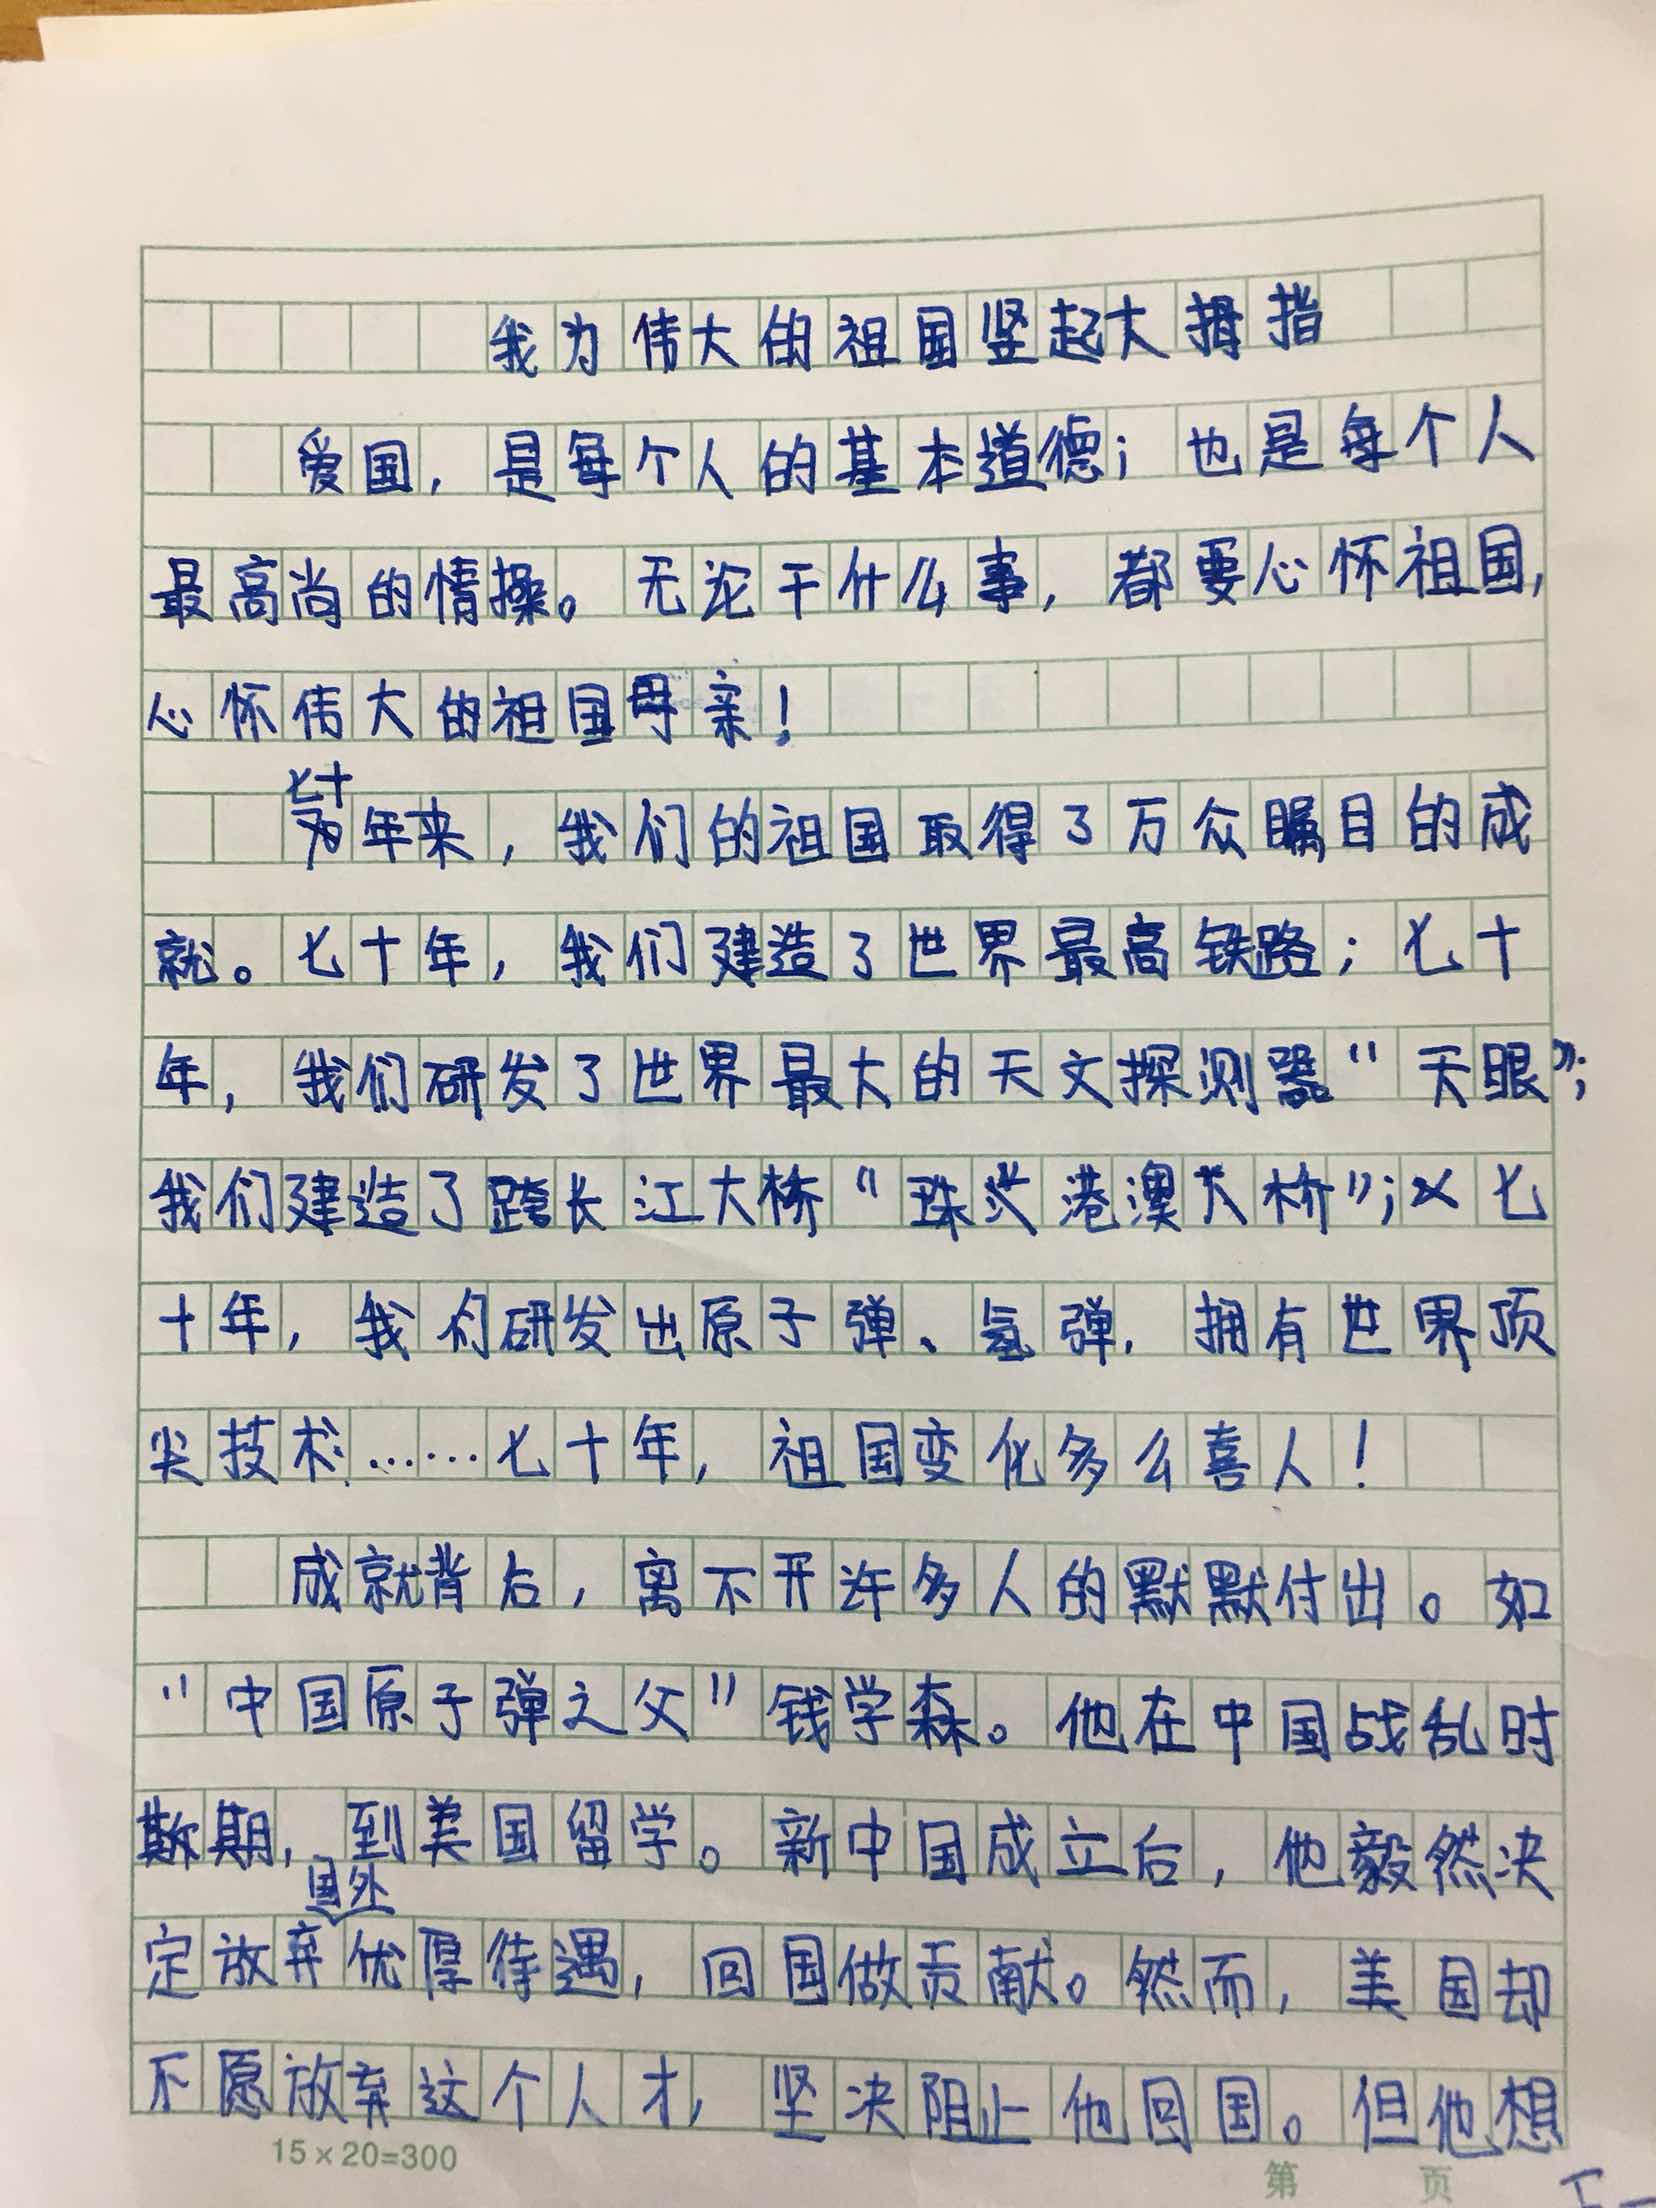 我为伟大的祖国竖起大拇指
爱国，是每个人的基本道德；也是每个人
最高尚的情操。无论干什么事，都要心怀祖国，
心怀伟大的祖国母亲！
七十
年来，我们的祖国取得了万众瞩目的成
就。七十年，我们建造了世界最高铁路；七十
年，我们研发了世界最大的天文探测器“天眼”；
我们建造了跨长江大桥“珠港澳大桥”；七
十年，我们研发出原子弹、氢弹，拥有世界顶
尖技术……七十年，祖国变化多么喜人！
成就背后，离不开许多人的默默付出。如
“中国原子弹之父”钱学森。他在中国战乱时
期，到美国留学。新中国成立后，他毅然决
国外
定放弃优厚待遇，回国做贡献。然而，美国却
不愿放弃这个人才，坚决阻止他回国。但他想
15×20=300
第 页